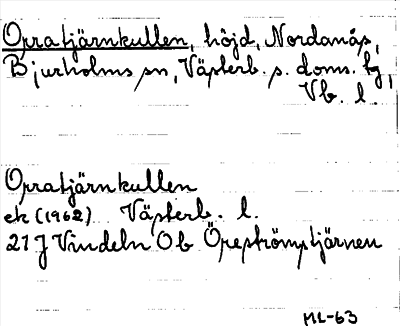 Orratjärnkullen, höjd, Nordanås,
Bjurholms sn, Västerb. s. doms. tg,
Vb. l.
Orratjärnkullen
ek (1962) Västerb. l.
21 J Vindeln Ob Öreströmstjärnen
ML-63